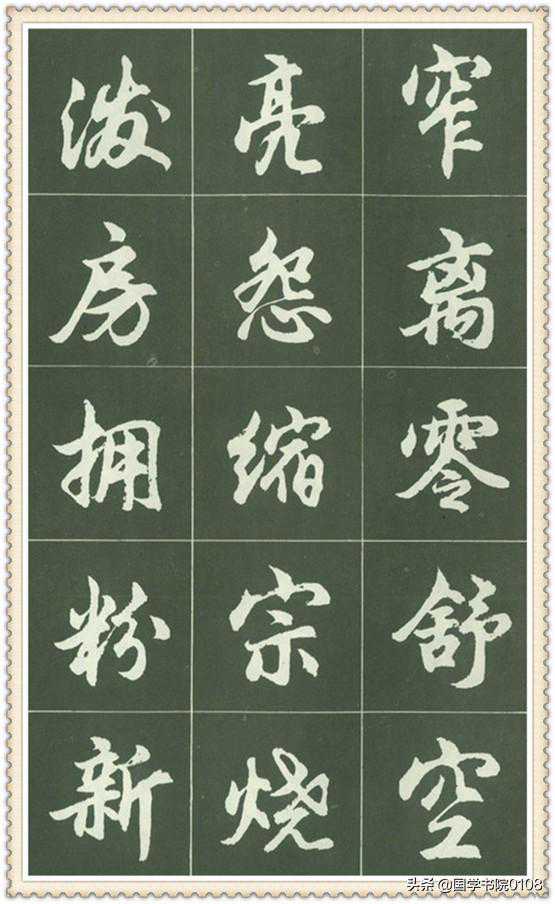 窄离零舒空
亮怨缩宗烧
泼房拥粉新
头条 @国学书院0108